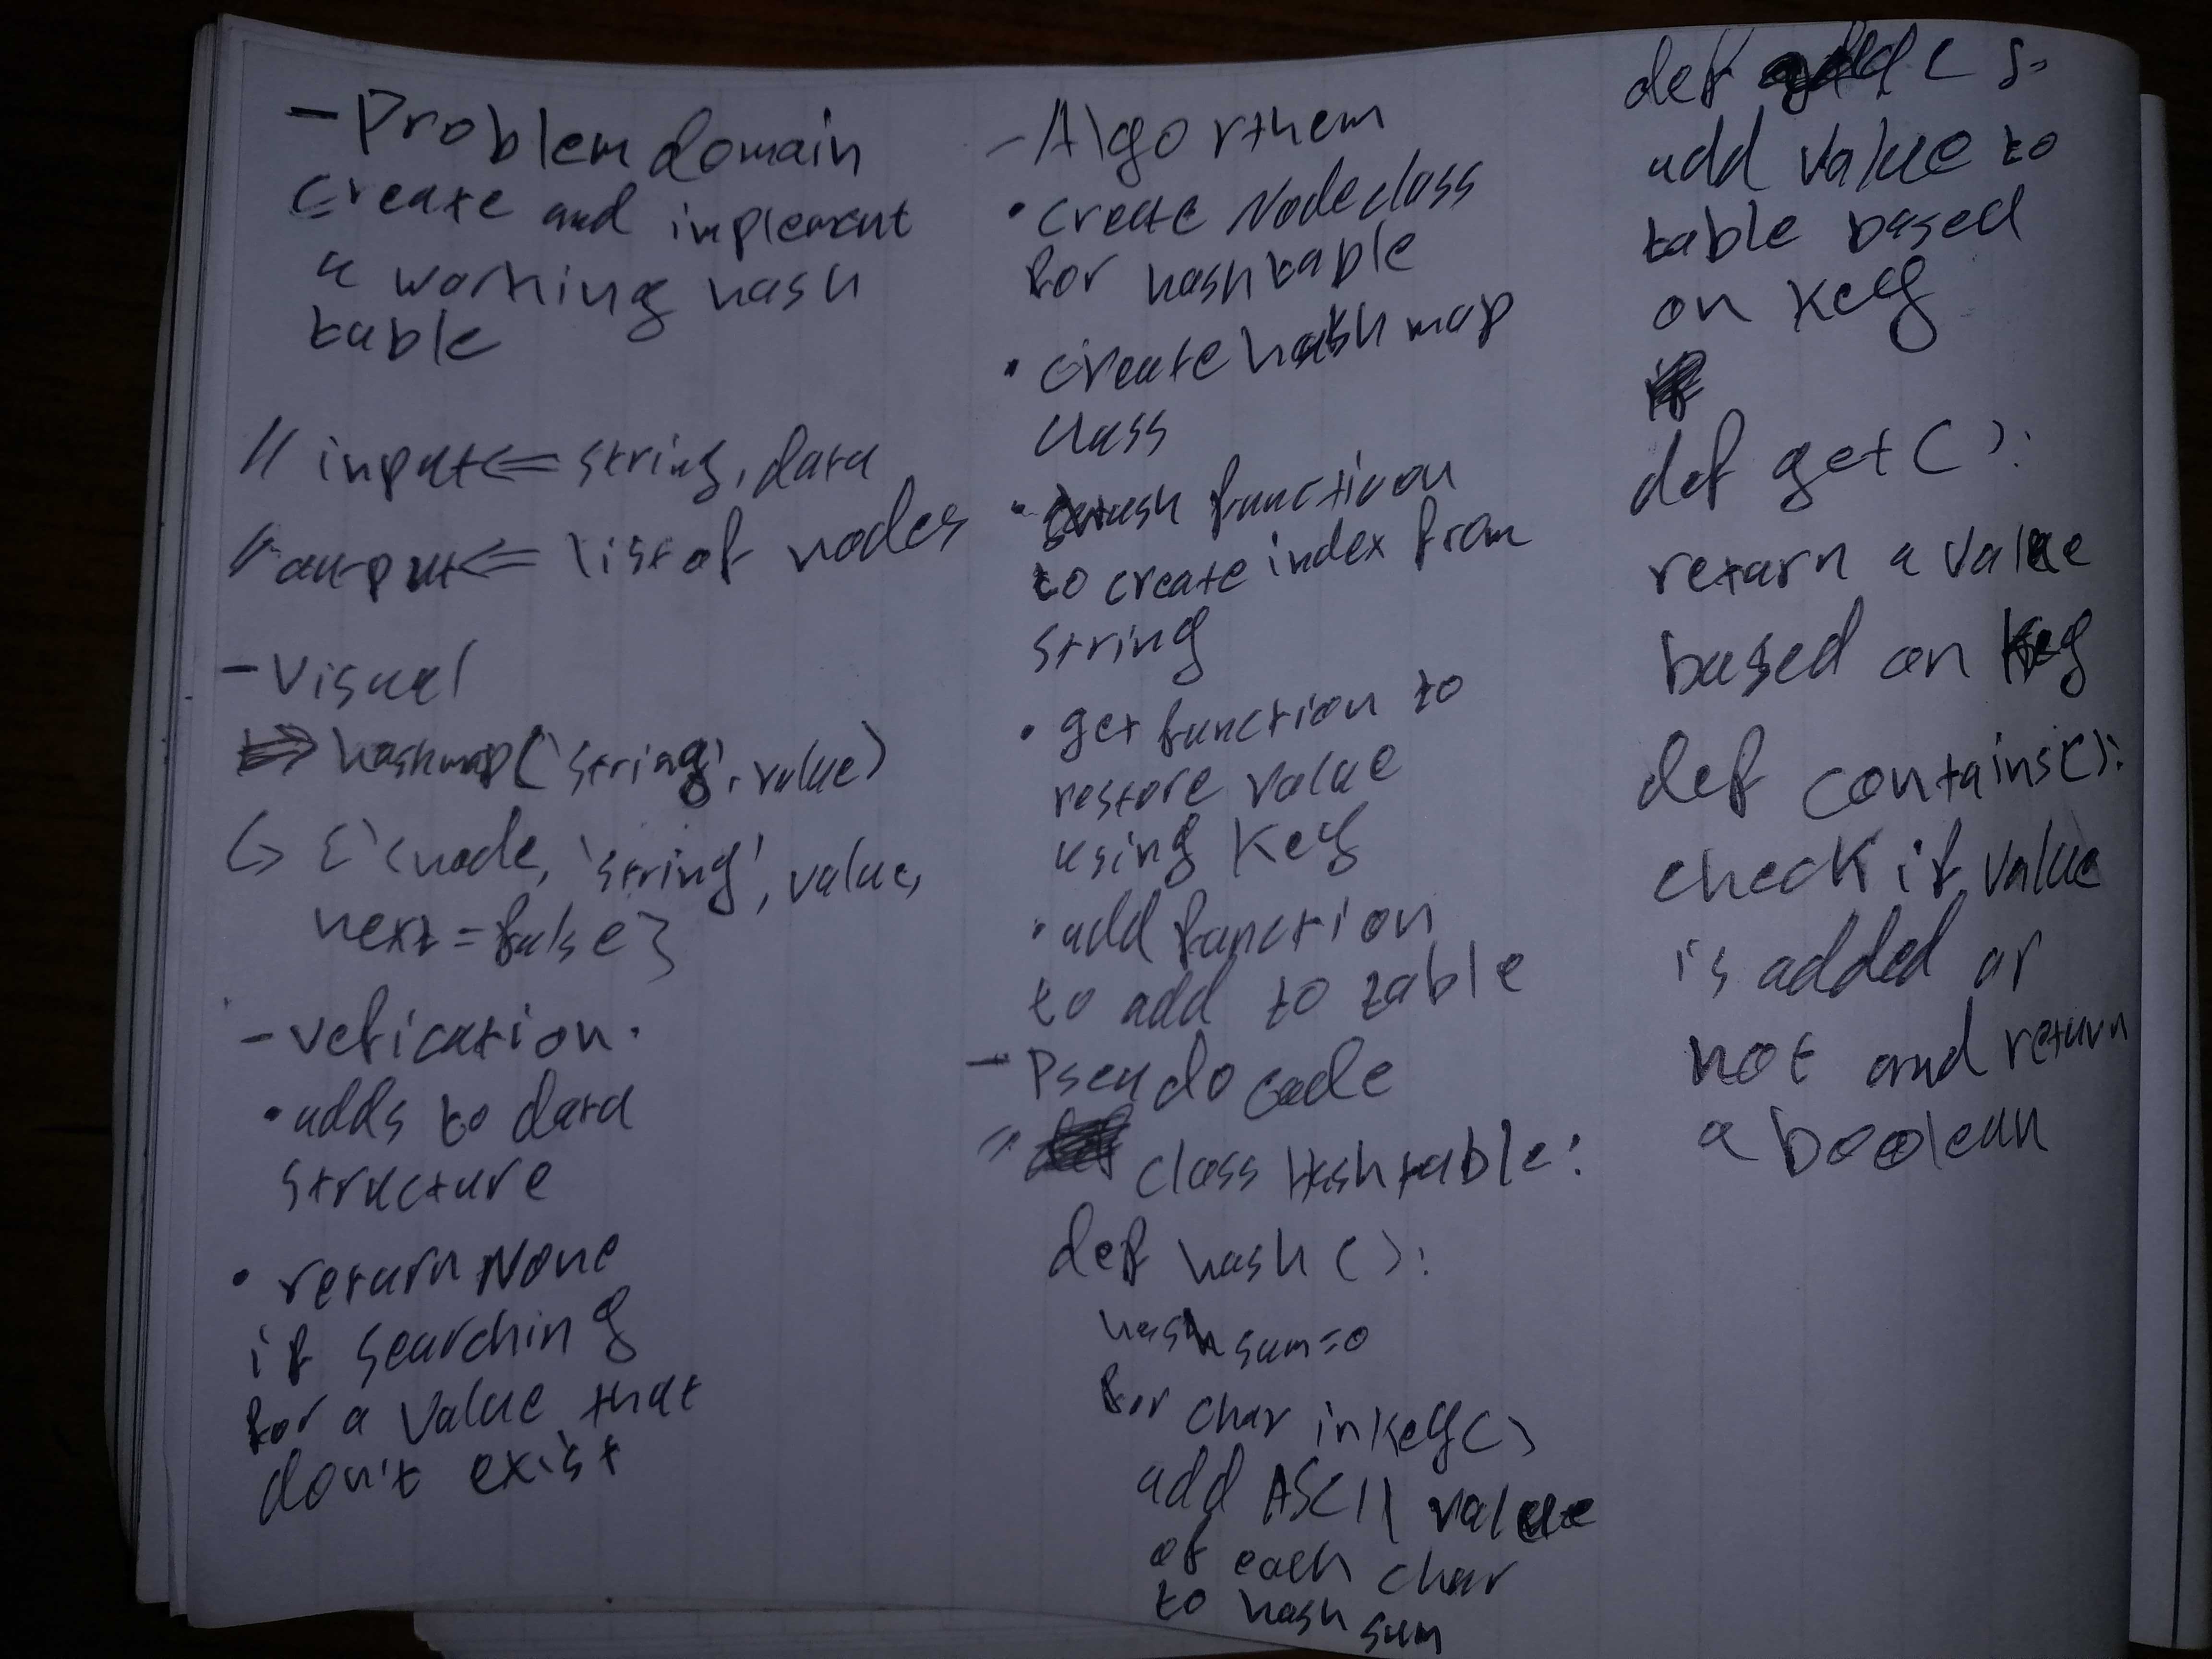 - Problem domain
create and implement
a working hash
table
// input <= string, data
// output <= list of nodes
- Visual
=> hashmap('string', value)
↳ {'<node, 'string', value,
next = false}
- vefication.
• adds to data
structure
• return None
if searching
for a value that
don't exist
- Algorthem
• create Node class
for hashtable
• create hash map
class
• hash function
to create index from
string
• get function to
restore value
using key
• add function
to add to table
- Pseudo code
class Hashtable:
def hash():
hash sum=0
for char in key()
add ASCII value
of each char
to hash sum
def add():
add value to
table based
on key
def get():
return a value
based on key
def contains():
check if value
is added or
not and return
a boolean